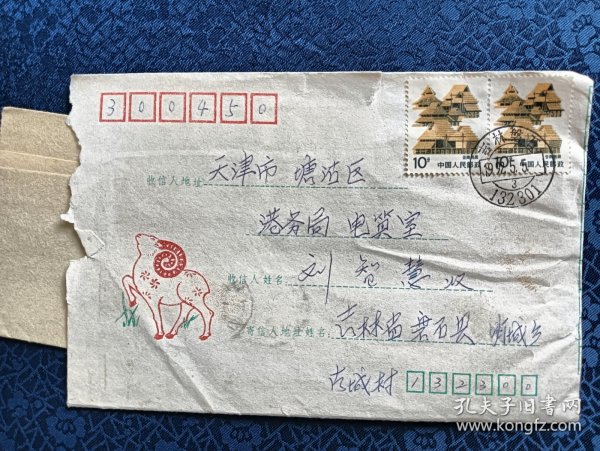 300450
10分 中国人民邮政
10分 中国人民邮政
132301
收信人地址 天津市 塘沽区
港务局 电算室
收信人姓名 刘智慧 收
寄信人地址姓名 吉林省磐石县 明城乡
古城村 132300
孔夫子旧书网
www.kongfz.com